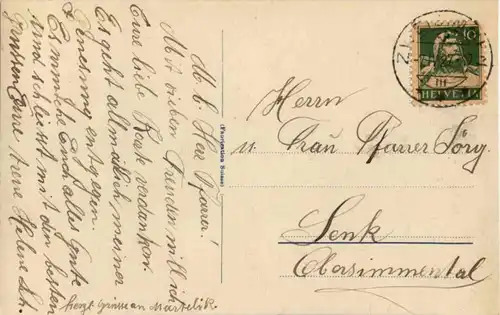 M. l. Herr Pfarrer!
Mit vielen Freuden will ich
Eure liebe Karte verdanken.
Es geht allmählich meiner
Änderung entgegen.
Ich wünsche Euch alles Gute
und schliesst mit den besten
Grüssen Eure treue Helene Sch.
herzl. Grüsse an Martelik.
HELVETIA
10
Herrn
u. Frau Pfarrer Sörg.
Lenk
Obersimmental